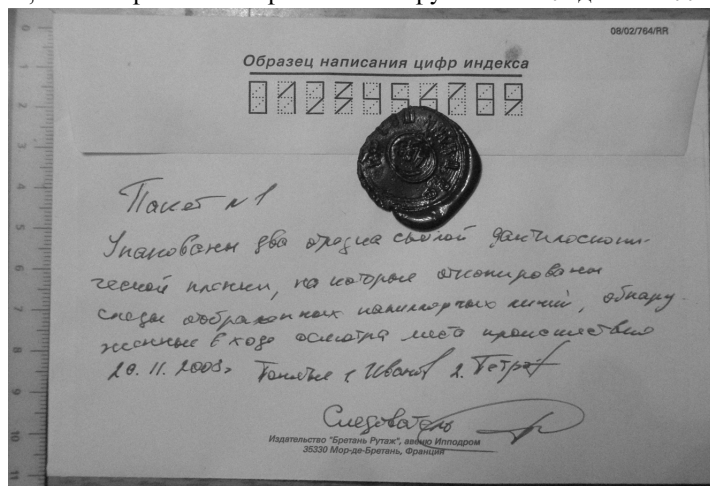 08/02/764/RR
Образец написания цифр индекса
0123456789
Пакет №1
Упакованы два отрезка светлой дактилоскопи-
ческой пленки, на которые откопированы
следы отображения папиллярных линий, обнару
женные в ходе осмотра места происшествия
20.11.2003г Понятые 1. Иванов 2. Петров
Следователь
Издательство "Бретань Рутаж", авеню Ипподром
35330 Мор-де-Бретань, Франция
0 1 2 3 4 5 6 7 8 9 10 11